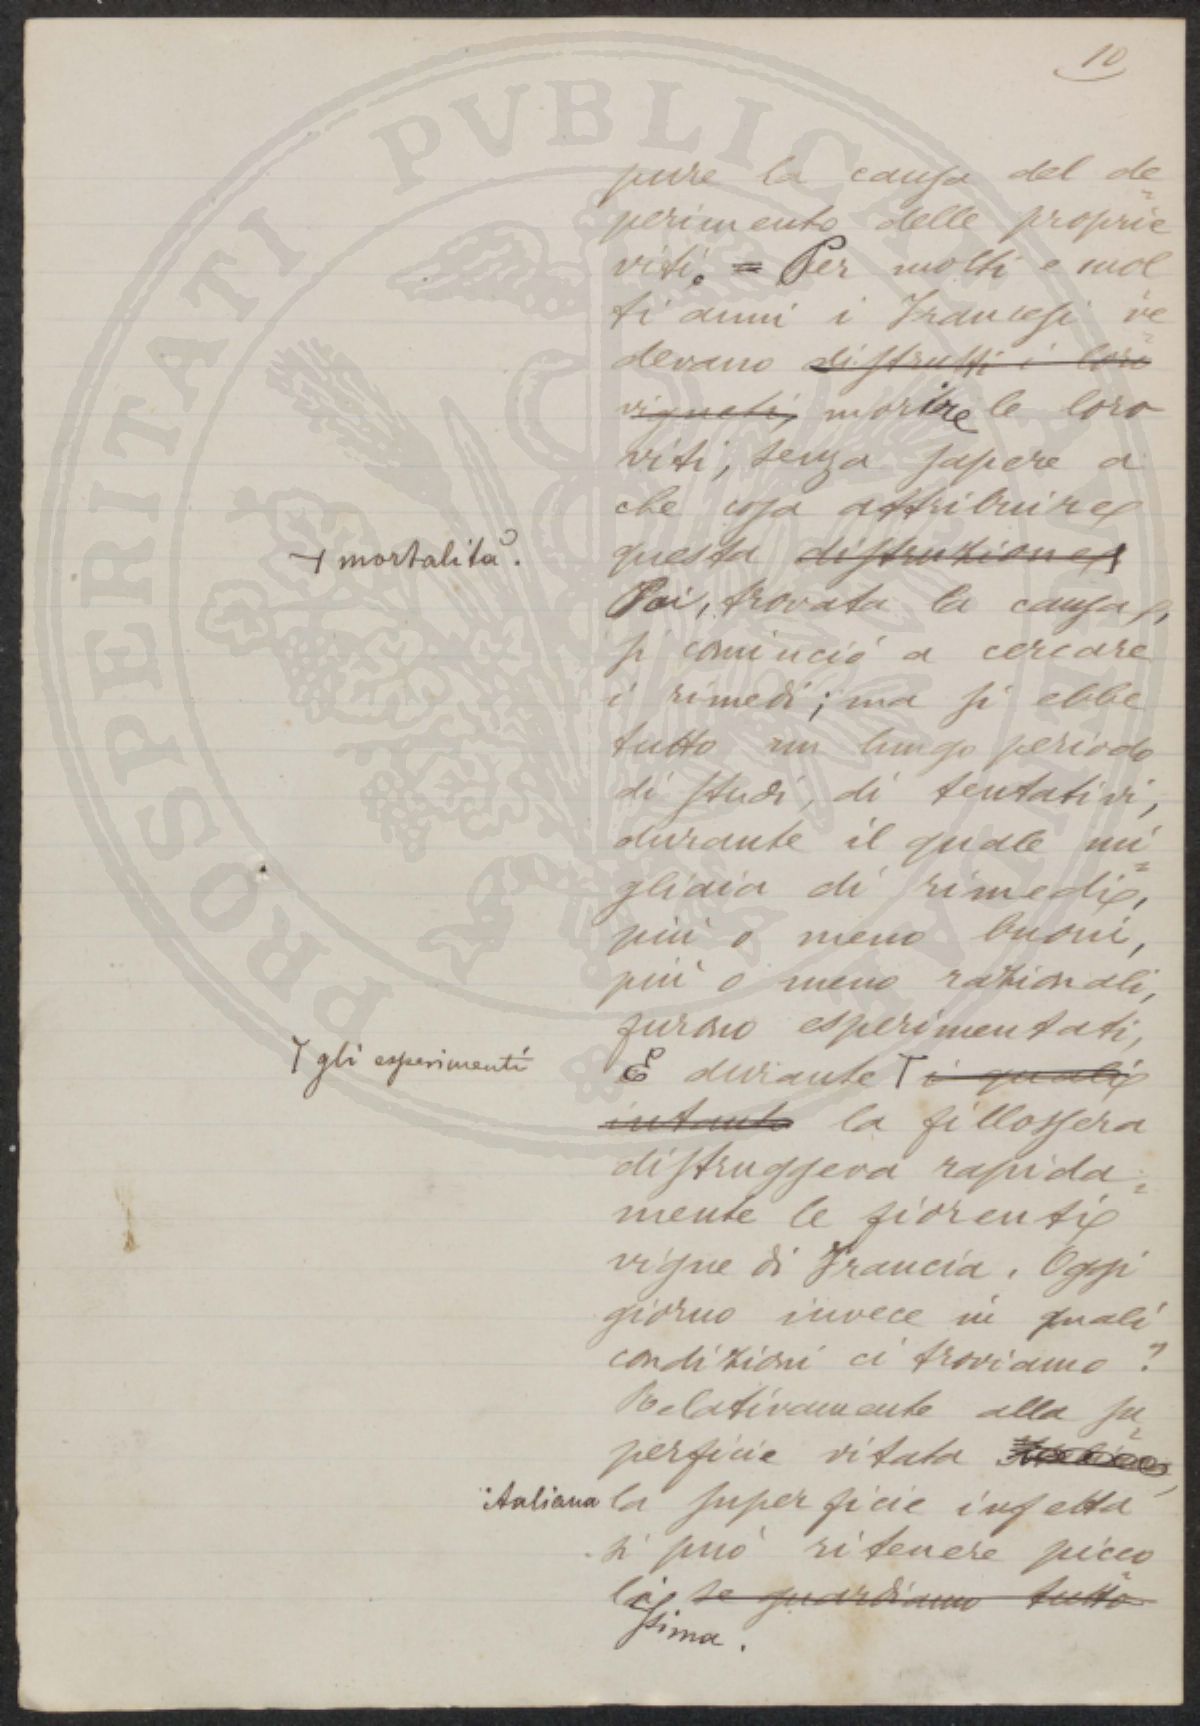 10
pure la causa del de=
perimento delle proprie
viti. = Per molti e mol
ti anni i Francesi ve=
devano distrutti i loro
vigneti, morire le loro
viti, senza sapere a
che cosa attribuire
questa distruzione
+ mortalità.
Poi, trovata la causa,
si cominciò a cercare
i rimedi; ma si ebbe
tutto un lungo periodo
di studi, di tentativi,
durante il quale mi=
gliaia di rimedi,
più o meno buoni,
più o meno razionali,
furono esperimentati,
E durante T i quali
T gli esperimenti
intanto la fillossera
distruggeva rapida=
mente le fiorenti
vigne di Francia. Oggi
giorno invece in quali
condizioni ci troviamo?
Relativamente alla su=
perficie vitata
italiana la superficie infetta
si può ritenere picco=
lissima. se guardiamo tutto
PROSPERITATI PVBLICAE